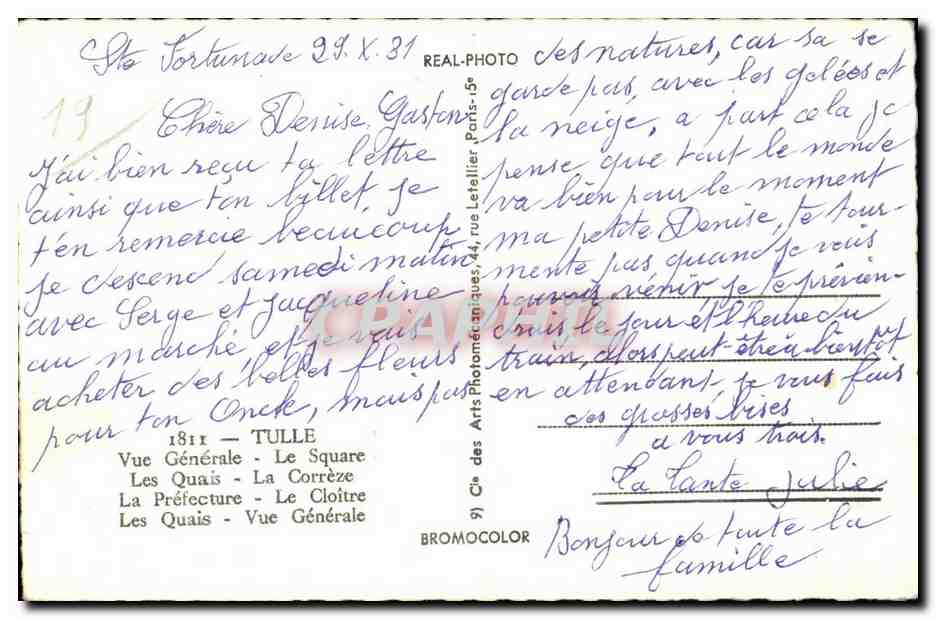 Ste Fortunade 29.X.81
19
Chère Denise, Gaston
J'ai bien reçu ta lettre
ainsi que ton billet, je
t'en remercie beaucoup
je descend samedi matin
avec Serge et Jacqueline
au marché, et je vais
acheter des belles fleurs
pour ton Oncle, mais pas
1811 — TULLE
Vue Générale - Le Square
Les Quais - La Corrèze
La Préfecture - Le Cloître
Les Quais - Vue Générale
REAL-PHOTO
9) Cie des Arts Photomécaniques, 44, rue Letellier, Paris-15e
BROMOCOLOR
CPAPHIL
des natures, car sa se
garde pas, avec les gelées et
la neige, a part cela je
pense que tout le monde
va bien pour le moment
ma petite Denise, te tour-
mente pas quand je vais
pouvoir venir, je te prévien-
drais le jour et l'heure du
train, Alors peut-être a bientôt
en attendant, je vous fais
des grosses bises
a vous trois.
La Tante Julie
Bonjour a toute la
famille